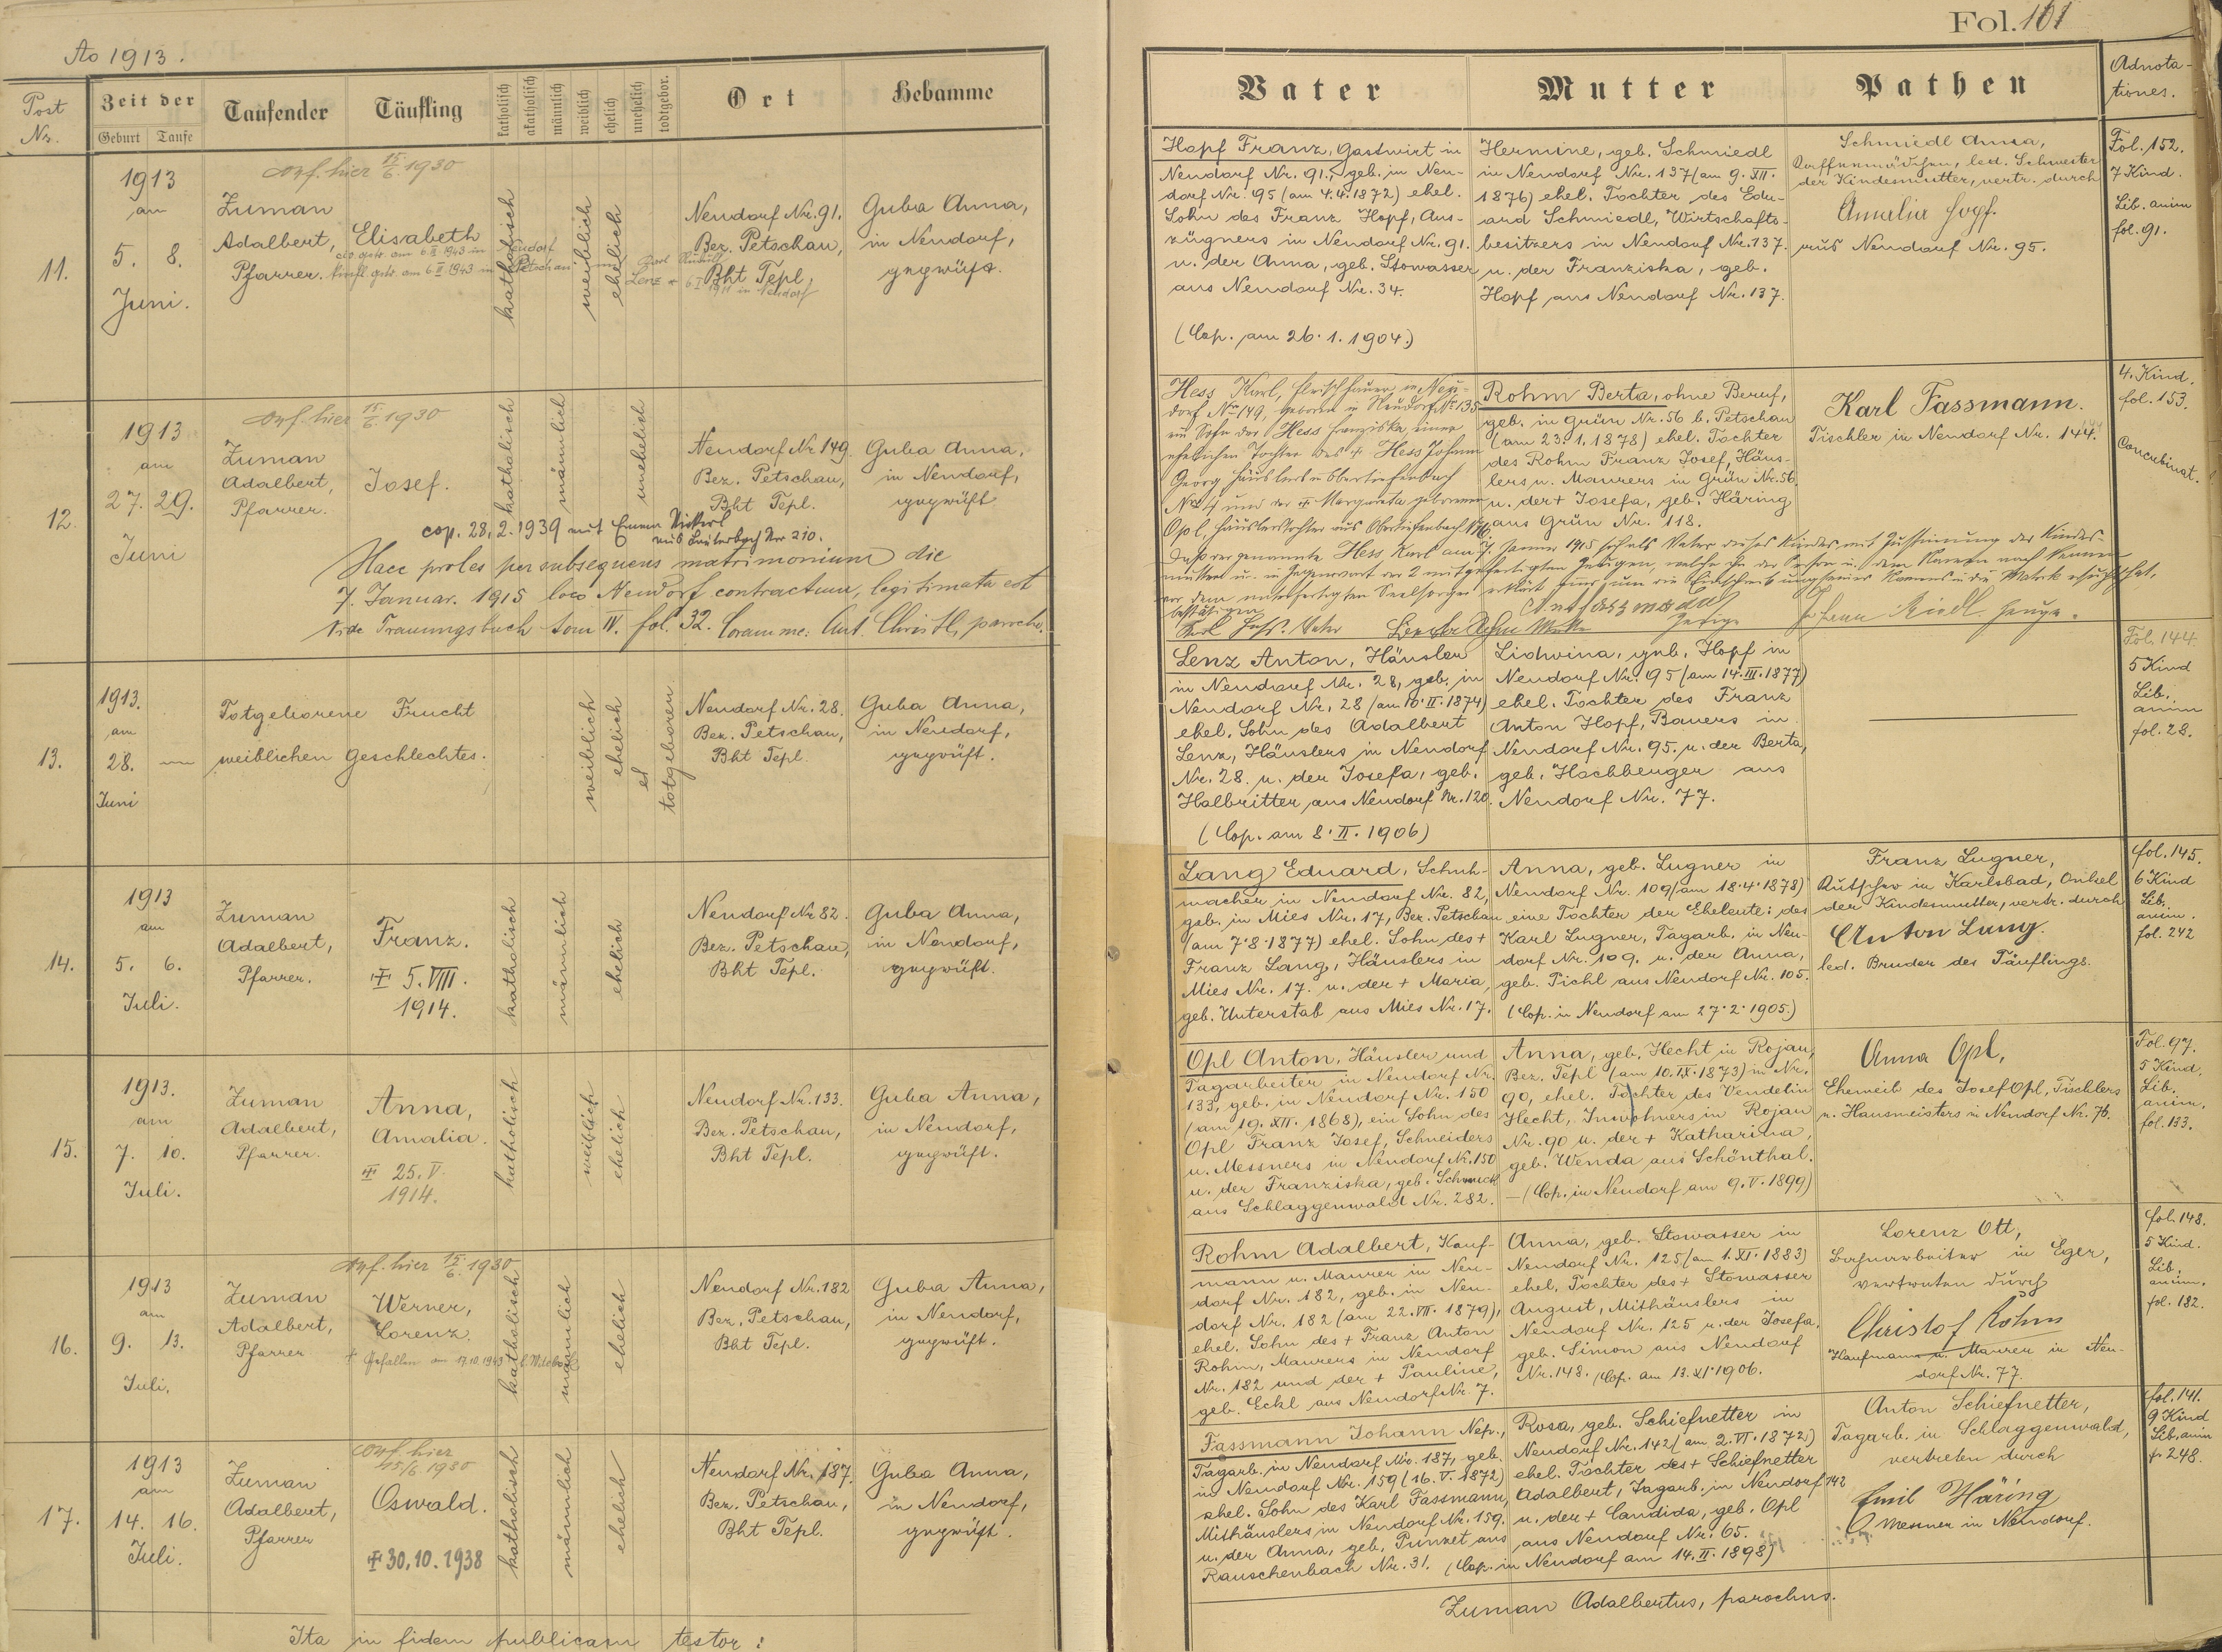 Ao 1913.
Post Nr.
Zeit der
Geburt Taufe
Taufender
Täufling
katholisch
akatholisch
männlich
weiblich
ehelich
unehelich
todtgebor.
Ort
Hebamme
11.
1913
am
5. 8.
Juni.
Zuman
Adalbert,
Pfarrer.
Elisabeth
katholisch
weiblich
ehelich
Neudorf Nr. 91.
Bez. Petschau,
Bht Tepl,
Guba Anna,
in Neudorf,
geprüft.
12.
1913
am
27. 29.
Juni
Zuman
Adalbert,
Pfarrer.
Josef.
katholisch
männlich
unehelich
Neudorf Nr 149.
Bez. Petschau,
Bht Tepl.
Guba Anna,
in Neudorf,
geprüft
cop. 28. 2. 1939 mit Emma
Haec proles per subsequens matrimonium die
7. Januar. 1915 loco Neudorf contractum, legitimata est
Vide Trauungsbuch tom IV. fol. 32. Coram me:
13.
1913.
am
28. —
Juni
Totgeborene Frucht
weiblichen Geschlechtes.
weiblich
ehelich
et
totgeboren
Neudorf Nr. 28.
Bez. Petschau,
Bht Tepl.
Guba Anna,
in Neudorf,
geprüft.
14.
1913
am
5. 6.
Juli.
Zuman
Adalbert,
Pfarrer.
Franz.
5. VIII.
1914.
katholisch
männlich
ehelich
Neudorf Nr 82.
Bez. Petschau,
Bht Tepl.
Guba Anna,
in Neudorf,
geprüft.
15.
1913.
am
7. 10.
Juli.
Zuman
Adalbert,
Pfarrer.
Anna,
Amalia.
25. V.
1914.
katholisch
weiblich
ehelich
Neudorf Nr. 133.
Bez. Petschau,
Bht Tepl.
Guba Anna,
in Neudorf,
geprüft.
16.
1913
am
9. 13.
Juli.
Zuman
Adalbert,
Pfarrer
Werner,
Lorenz.
katholisch
männlich
ehelich
Neudorf Nr. 182
Bez. Petschau,
Bht Tepl.
Guba Anna,
in Neudorf,
geprüft.
17.
1913
am
14. 16.
Juli.
Zuman
Adalbert,
Pfarrer
Oswald.
30. 10. 1938
katholisch
männlich
ehelich
Neudorf Nr. 187.
Bez. Petschau,
Bht Tepl.
Guba Anna,
in Neudorf,
geprüft.
Ita in fidem publicam testor:
Fol. 161
Vater
Mutter
Pathen
Adnotationes.
Hopf Franz, Gastwirt in
Neudorf Nr. 91., geb. in Neu-
dorf Nr. 95 (am 4.4.1872) ehel.
Sohn des Franz Hopf, Aus-
züglers in Neudorf Nr. 91.
u. der Anna, geb. Stowasser
aus Neudorf Nr. 34.
(Cop. am 26. 1. 1904.)
Hermine, geb. Schmiedl
in Neudorf Nr. 137 (am 9. XII.
1876) ehel. Tochter des Edu-
ard Schmiedl, Wirtschafts-
besitzers in Neudorf Nr. 137.
u. der Franziska, geb.
Hopf aus Neudorf Nr. 137.
Schmiedl Anna,
led. Schwester
der Kindesmutter, vertr. durch
Amalia Hopf.
aus Neudorf Nr. 95.
Fol. 152.
7 Kind.
Lib. anim
fol. 91.
Hess Karl, Fleischhauer in Neu-
dorf Nr. 149, geboren in Neudorf Nr. 135
ein Sohn der Hess Franziska, einer
ehelichen Tochter des † Hess Johann
Rohm Berta, ohne Beruf,
geb. in Grün Nr. 56 b. Petschau
(am 23. 1. 1878) ehel. Tochter
des Rohm Franz Josef, Häus-
lers u. Maurers in Grün Nr. 56.
u. der † Josefa, geb. Häring
aus Grün Nr. 118.
Karl Fassmann.
Tischler in Neudorf Nr. 144.
4. Kind.
fol. 153.
Concubinat.
Lenz Anton, Häusler
in Neudorf Nr. 28, geb. in
Neudorf Nr. 28 (am 10. II. 1874)
ehel. Sohn des Adalbert
Lenz, Häuslers in Neudorf
Nr. 28. u. der Josefa, geb.
Halbritter aus Neudorf Nr. 120.
(Cop. am 8. II. 1906)
Lidwina, geb. Hopf in
Neudorf Nr. 95 (am 14. III. 1877)
ehel. Tochter des Franz
Anton Hopf, Bauers in
Neudorf Nr. 95. u. der Berta,
geb. Hochberger aus
Neudorf Nr. 77.
Fol. 144.
5 Kind
Lib.
anim
fol. 28.
Lang Eduard, Schuh-
macher in Neudorf Nr. 82,
geb. in Mies Nr. 17, Bez. Petschau
(am 7. 8. 1877) ehel. Sohn des †
Franz Lang, Häuslers in
Mies Nr. 17. u. der † Maria,
geb. Unterstab aus Mies Nr. 17.
Anna, geb. Lugner in
Neudorf Nr. 109 (am 18. 4. 1878)
eine Tochter der Eheleute: des
Karl Lugner, Tagarb. in Neu-
dorf Nr. 109. u. der Anna,
geb. Pichl aus Neudorf Nr. 105.
(Cop. in Neudorf am 27. 2. 1905.)
Franz Lugner,
Kutscher in Karlsbad, Onkel
der Kindesmutter, vertr. durch
Anton Lang.
led. Bruder des Täuflings.
fol. 145.
6 Kind
Lib.
anim.
fol. 242
Opl Anton, Häusler und
Tagarbeiter in Neudorf Nr.
133, geb. in Neudorf Nr. 150
(am 19. XII. 1868), ein Sohn des
Opl Franz Josef, Schneiders
u. Messners in Neudorf Nr. 150
u. der Franziska, geb. Schmuck
aus Schlaggenwald Nr. 282.
Anna, geb. Hecht in Rojau,
Bez. Tepl (am 10. IX. 1873) in Nr.
90, ehel. Tochter des Wendelin
Hecht, Inwohners in Rojau
Nr. 90 u. der † Katharina,
geb. Wenda aus Schönthal.
— (Cop. in Neudorf am 9. V. 1899)
Anna Opl,
Eheweib des Josef Opl, Tischlers
u. Hausmeisters in Neudorf Nr. 76.
Fol. 97.
5 Kind.
Lib.
anim.
fol. 133.
Rohm Adalbert, Kauf-
mann u. Maurer in Neu-
dorf Nr. 182, geb. in Neu-
dorf Nr. 182 (am 22. VII. 1879),
ehel. Sohn des † Franz Anton
Rohm, Maurers in Neudorf
Nr. 182 und der † Pauline,
geb. Eckl aus Neudorf Nr. 7.
Anna, geb. Stowasser in
Neudorf Nr. 125 (am 1. XI. 1883)
ehel. Tochter des † Stowasser
August, Mithäuslers in
Neudorf Nr. 125 u. der Josefa,
geb. Simon aus Neudorf
Nr. 148. (Cop. am 13. XI. 1906.
Lorenz Ott,
Bahnarbeiter in Eger,
vertreten durch
Christof Rohm
Kaufmann u. Maurer in Neu-
dorf Nr. 77.
fol. 148.
5 Kind.
Lib.
anim.
fol. 182.
Fassmann Johann Nep.,
Tagarb. in Neudorf Nr. 187, geb.
in Neudorf Nr. 159 (16. V. 1872)
ehel. Sohn des Karl Fassmann,
Mithäuslers in Neudorf Nr. 159.
u. der Anna, geb. Punzet aus
Rauschenbach Nr. 31.
Rosa, geb. Schiefnetter in
Neudorf Nr. 142 (am 2. VI. 1872)
ehel. Tochter des † Schiefnetter
Adalbert, Tagarb. in Neudorf 142
u. der † Candida, geb. Opl
aus Neudorf Nr. 65.
(Cop. in Neudorf am 14. II. 1898)
Anton Schiefnetter,
Tagarb. in Schlaggenwald,
vertreten durch
Emil Häring
Mesner in Neudorf.
fol. 141.
9 Kind
Lib. anim
f. 248.
Zuman Adalbertus, parochus.